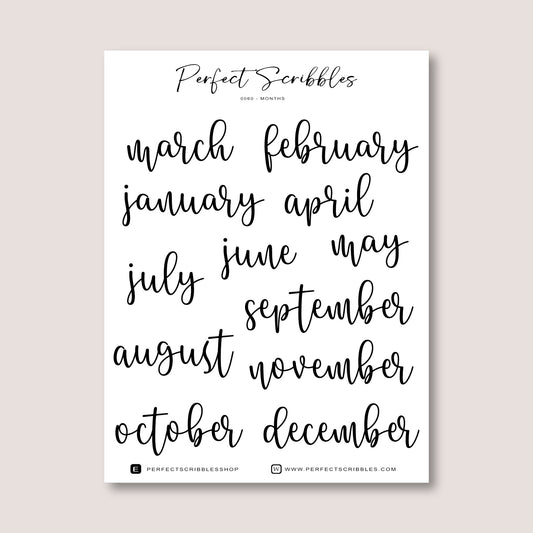 Perfect Scribbles
0060 - MONTHS
march february
january april
june may
july
september
august
november
october december
E PERFECTSCRIBBLESSHOP W WWW.PERFECTSCRIBBLES.COM